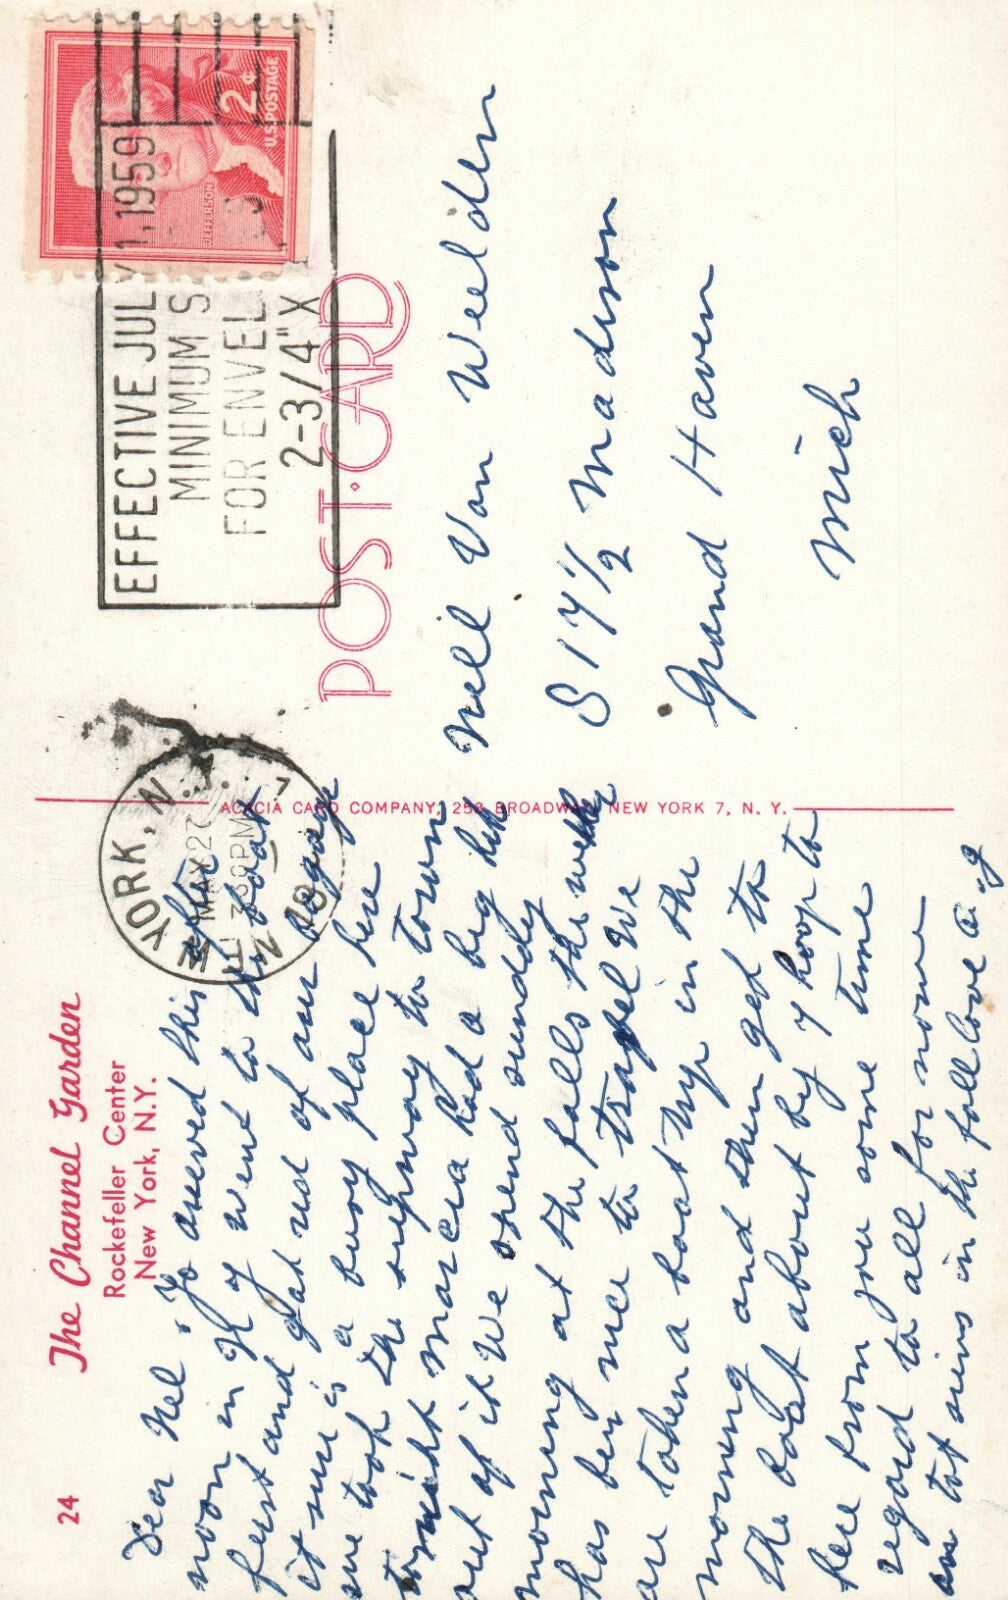 24
The Channel Garden
Rockefeller Center
New York, N.Y.
Dear Nel, Jo arrived this after
noon in N y went to the boat
first and got rid of our bagage
it sure is a busy place here
we took the subway to town
tonight Marcia had a big kick
out of it We spend sunday
morning at the falls the weather
has ben nice to travel We
are taken a boat trip in the
morning and then get to
the boat about by 4 hoop to
here from you some time
regard to all for now
an tot siens in the fall love
ACACIA CARD COMPANY, 258 BROADWAY, NEW YORK 7, N. Y.
POST·CARD
NEW YORK, N.Y.
MAY 27
3 30PM
EFFECTIVE JULY 1, 1959
MINIMUM S
FOR ENVEL
2-3/4" X
2¢
U.S. POSTAGE
JEFFERSON
Nell Van Weelden
817½ Madison
Grand Haven
Mich